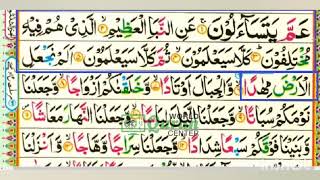 عَمَّ يَتَسَآءَلُوْنَ ۝ عَنِ النَّبَاِ الْعَظِيْمِ ۝ الَّذِيْ هُمْ فِيْهِ
مُخْتَلِفُوْنَ ۝ كَلَّا سَيَعْلَمُوْنَ ۝ ثُمَّ كَلَّا سَيَعْلَمُوْنَ ۝ اَلَمْ نَجْعَلِ
الْاَرْضَ مِهٰدًا ۝ وَّالْجِبَالَ اَوْتَادًا ۝ وَّخَلَقْنٰكُمْ اَزْوَاجًا ۝ وَّجَعَلْنَا
نَوْمَكُمْ سُبَاتًا ۝ وَّجَعَلْنَا الَّيْلَ لِبَاسًا ۝ وَّجَعَلْنَا النَّهَارَ مَعَاشًا ۝
وَّبَنَيْنَا فَوْقَكُمْ سَبْعًا شِدَادًا ۝ وَّجَعَلْنَا سِرَاجًا وَّهَّاجًا ۝ وَّاَنْزَلْنَا
WORLD
CENTER